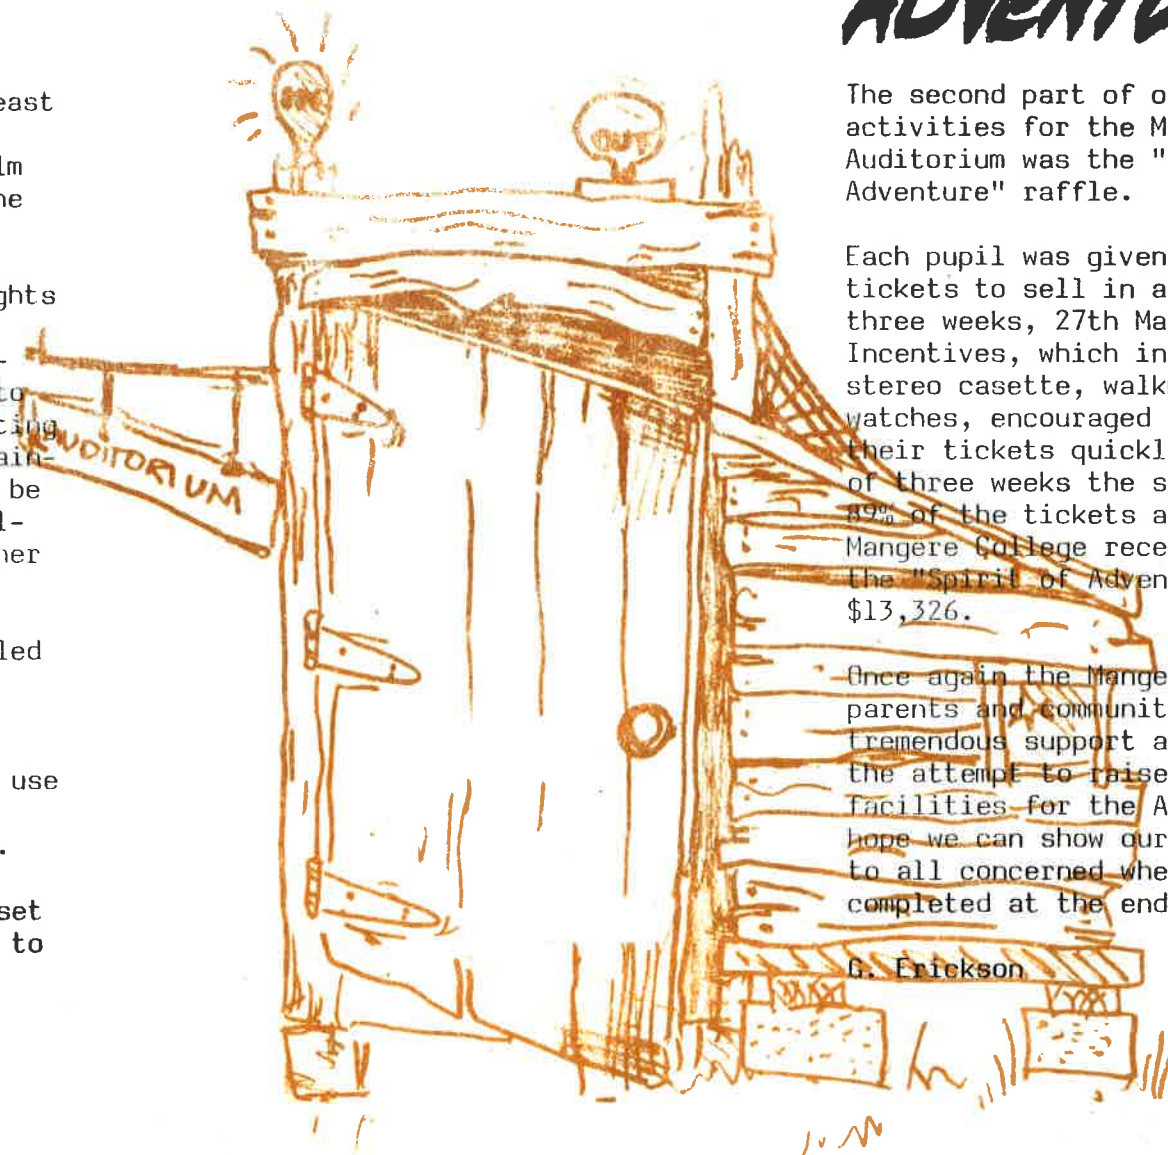 east
lm
ne
ghts
-
to
ting
ain-
be
l-
her
led
use
.
set
to
OUT
AUDITORIUM
ADVENTU
The second part of o
activities for the M
Auditorium was the "
Adventure" raffle.
Each pupil was given
tickets to sell in a
three weeks, 27th Ma
Incentives, which in
stereo casette, walk
watches, encouraged
their tickets quickl
of three weeks the s
89% of the tickets a
Mangere College rece
the "Spirit of Adven
$13,326.
Once again the Mange
parents and communit
tremendous support a
the attempt to raise
facilities for the A
hope we can show our
to all concerned whe
completed at the end
G. Erickson